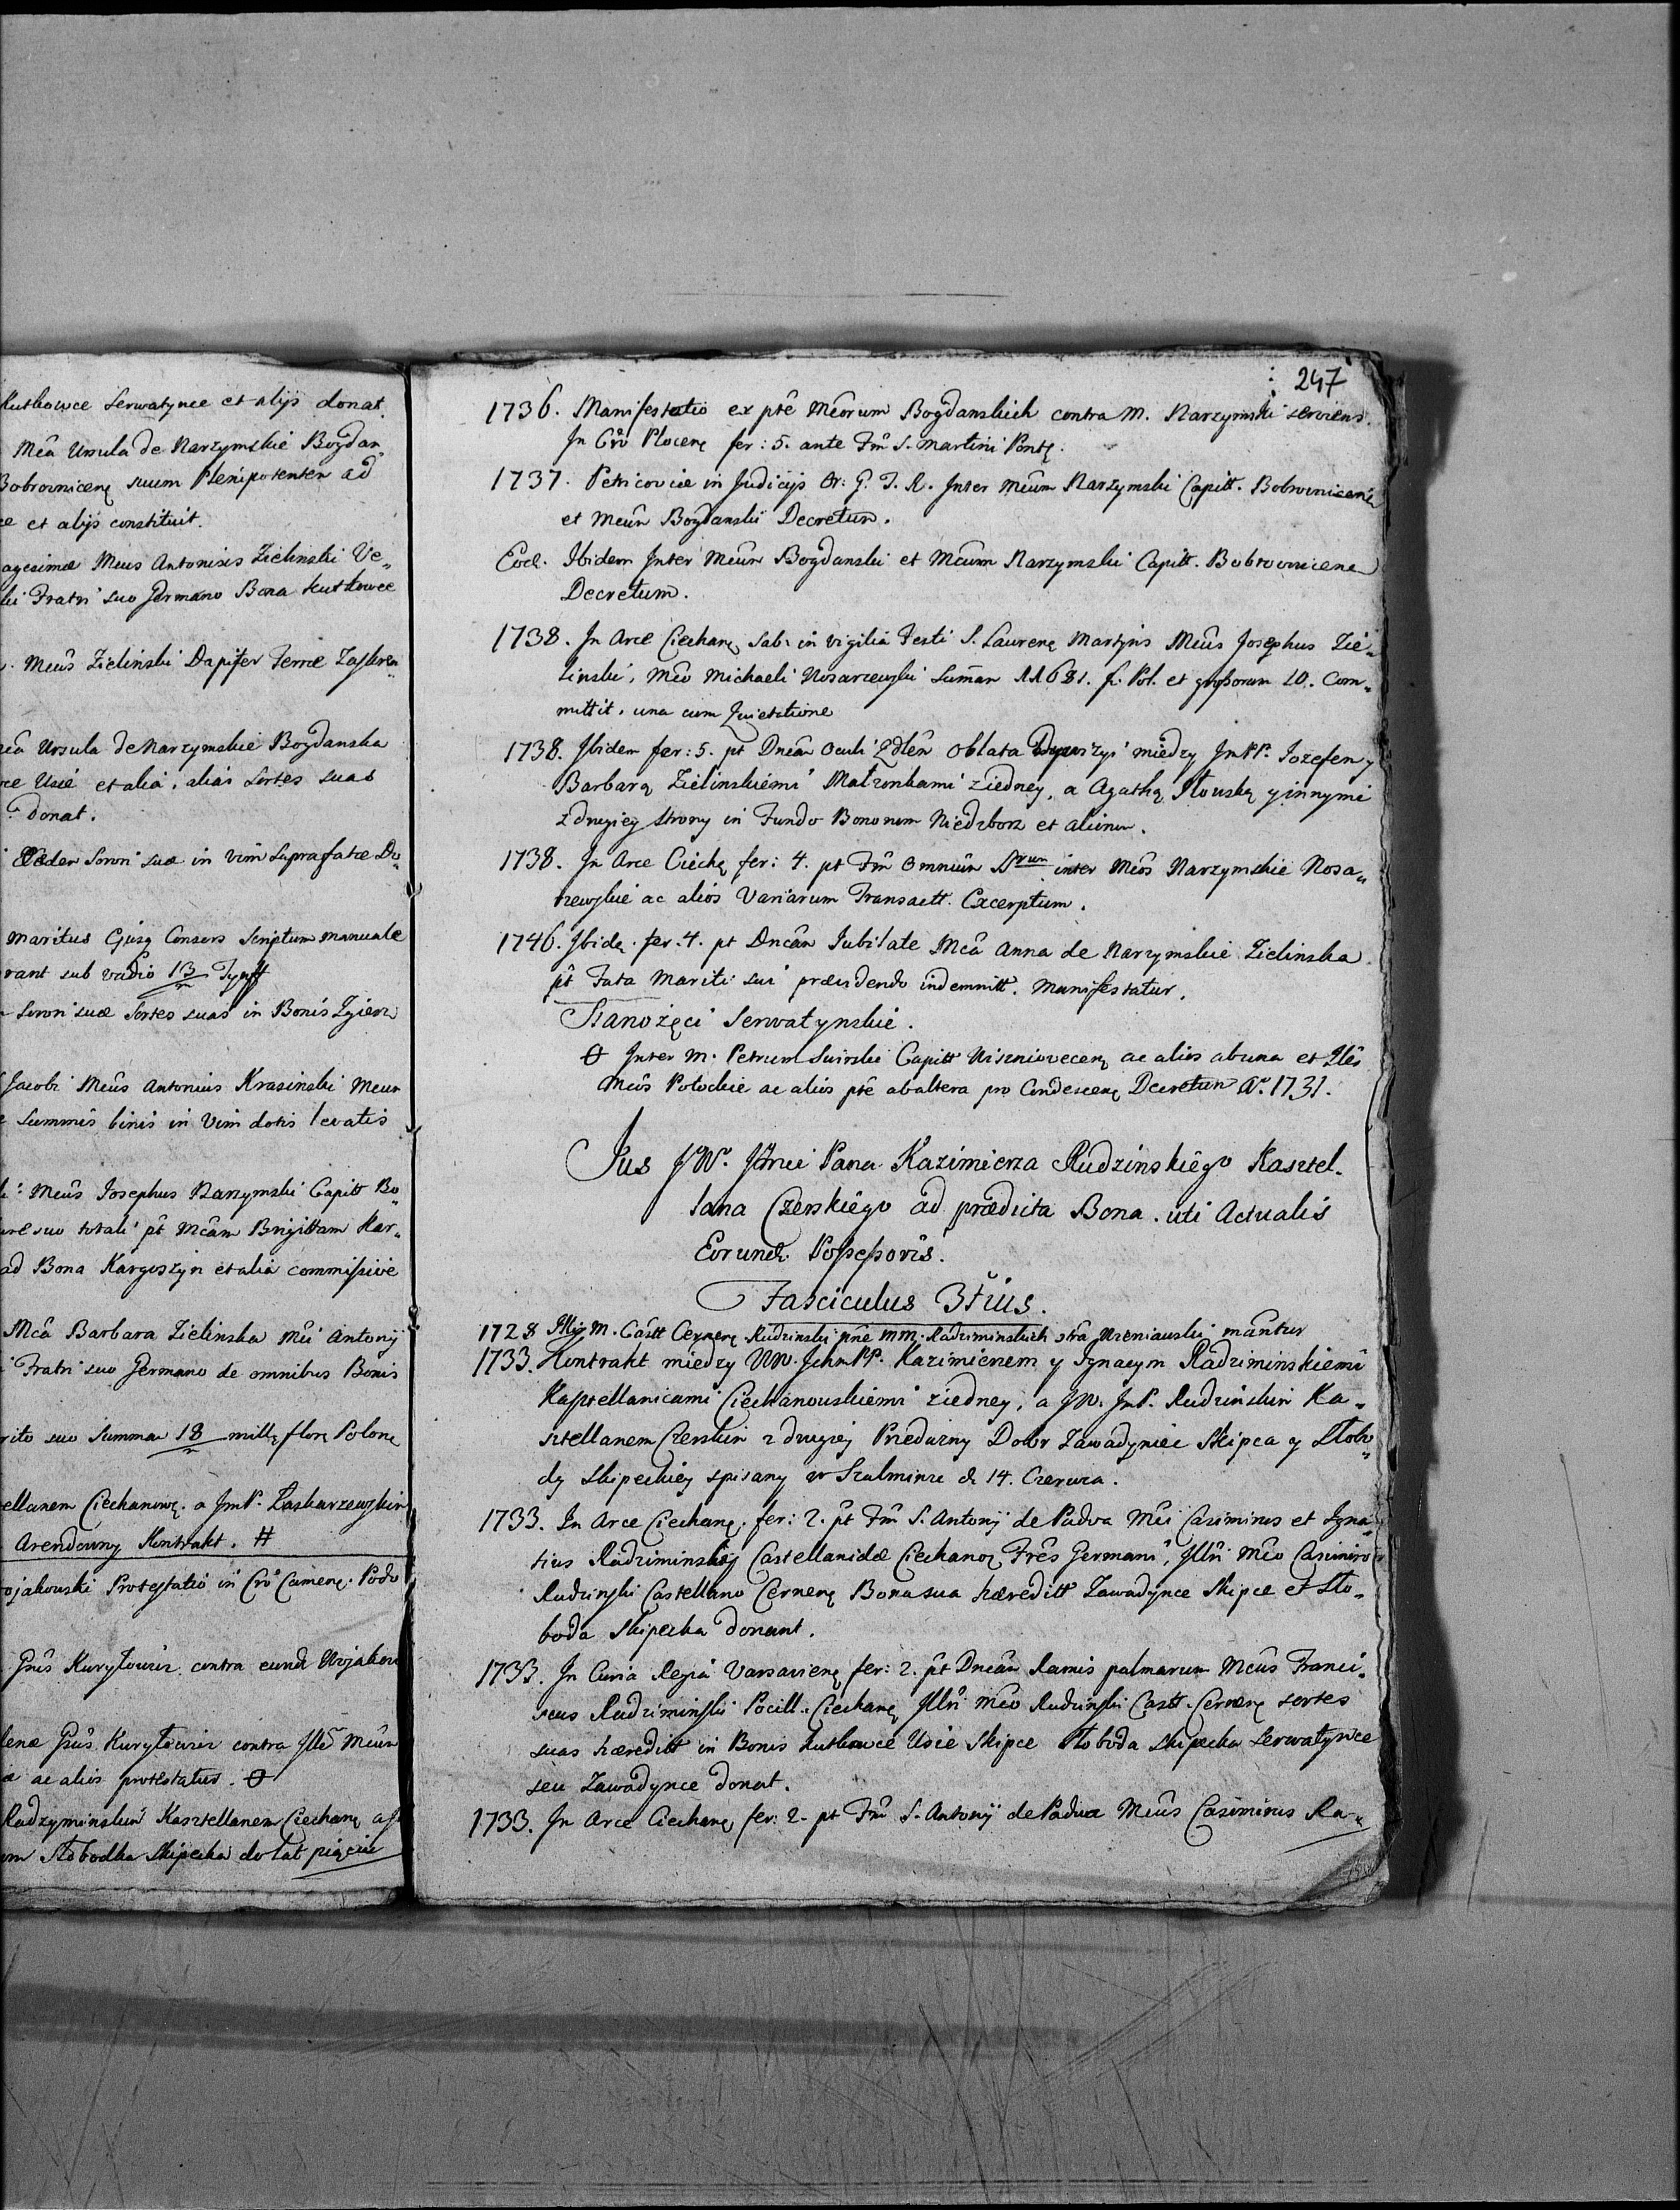 Kutkowce Serwatynce et alijs donat.
Mcâ Ursula de Narzymskie Bogdan„
Bobrownicenę suum Plenipotentem ad
et alijs constituit.
agesimæ Mcus Antonius Zielinski Ve„
Fratri suo Germano Bona Kutkowce
Mcûs Zielinski Dapifer Terræ Zaskren„
Ursula de Narzymskie Bogdanska
Usie et alia, alias Sortes suas
donat.
Eadem Sorori suæ in vim suprafatæ Do„
maritus Ejusq Consors Scriptum manuale
sub vadio 13/m Tynff
Sorori suæ Sortes suas in Bonis
Jacobi Mcûs Antonius Krasinski Mcum
Summis binis in Vim dotis levatis
Mcûs Josephus Narzymski Capitt Bo„
suo totali pt Mcâm Brigittam Kar„
ad Bona Kargoszyn et alia commissive
Mcâ Barbara Zielinska Mci Antonij
Fratri suo Germano de omnibus Bonis
suo Summam 18/m mille flore Polonę
Ciechanowę. a JmP. Laskarzewskim
Arendowny Kontrakt. #
Protestatio in Cro Camenę. Podo
Gsûs Kuryłowicz contra eund
Gsûs Kuryłowicz contra Jllê Mcûm
ac alios protestatur. Θ
Radzyminskim Kasztellanem Ciechanę
Słobodka Skipecka do lat pięciu
247
1736. Manifestatio ex ptê Mcôrum Bogdanskich contra M. Narzymski serviens.
In Crô Plocenę fer: 5. ante Fm̂ S. Martini Pontę.
1737. Petricoviæ in Judicijs Or: G. T. R. Inter Mcûm Narzymski Capitt. Bobrownicenę
et Mcûm Bogdanski Decretum.
Eod. Ibidem Inter Mcûm Bogdanski et Mcûm Narzymski Capitt. Bobrownicenę
Decretum.
1738. In Arce Ciechanę Sab: in vigilia Festi S. Laurenę Martyris Mcûs Josephus Zie„
linski, Mcô Michaeli Nosarzewski Sumâm 11681. f. Pol. et grossorum 10. Com„
mittit, una cum Quietatione
1738. Ibidem fer: 5. pt Dncâm Oculi Qdlêm Oblata między JmPP. Jozefem y
Barbarą Zielinskiemi Małżonkami ziedney, a Agathą Iłowską y innymi
z drugiey strony in Fundo Bonorum Niedzborz et aliorum.
1738. In Arce Ciechę fer: 4. pt Fm̂ Omnium Strum inter Mcôs Narzymskie Nosa„
rzewskie ac alios Variarum Transactt. Excerptum.
1746. Ibidę. fer. 4. pt Dncâm Jubilate Mcâ Anna de Narzymskie Zielinska
pt Fata Mariti sui præcidendo indemnitt. Manifestatur.
Stanożęci Serwatynskie.
Θ Inter M. Petrum Swirski Capitt Wiszniovecenę ac alios ab una et Jllês
Mcôs Potockie ac alios ptê ab altera pro Condescenę Decretum Aº. 1731.
Jus JW. Jmci Pana Kazimierza Rudzinskiego Kasztel.
lana Czerskiego ad prædicta Bona. uti Actualis
Eorund. Possessoris.
Fasciculus 3tius.
1728 M. Castt Cernenę Rudzinski pñe MM. Radziminskich ctra Wreniawski mantur
1733. Kontrakt między WW. JchmPP. Kazimierzem y Ignacym Radziminskiemi
Kasztellanicami Ciechanowskiemi ziedney, a JW. JmP. Rudzinskim Ka„
sztellanem Czerskim z drugiey Przedażny Dobr Zawadyniec Skipca y Słobo„
dy Skipeckiey spisany w Szulminie d. 14. Czerwca.
1733. In Arce Ciechanę. fer: 2. pt Fm̂ S. Antonij de Padua Mci Casimirus et Igna„
tius Radziminskij Castellanidæ Ciechanoę Frês Germani, Jllri Mcô Casimiro
Rudzinski Castellano Cernenę Bona sua hæreditt Zawadynce Skipce et Sło„
boda Skipecka donant.
1733. In Curia Regia Varsavienę fer: 2. pt Dncâm Ramis palmarum Mcûs Franci„
scus Radziminski Pocill. Ciechanę Jllri Mcô Rudzinski Castt. Cernenę sortes
suas hæreditt in Bonis Kutkowce Usie Skipce Słoboda Skipecka Serwatynce
seu Zawadynce donat.
1733. In Arce Ciechanę fer: 2. pt Fm̂ S. Antonij de Padua Mcûs Casimirus Ra„